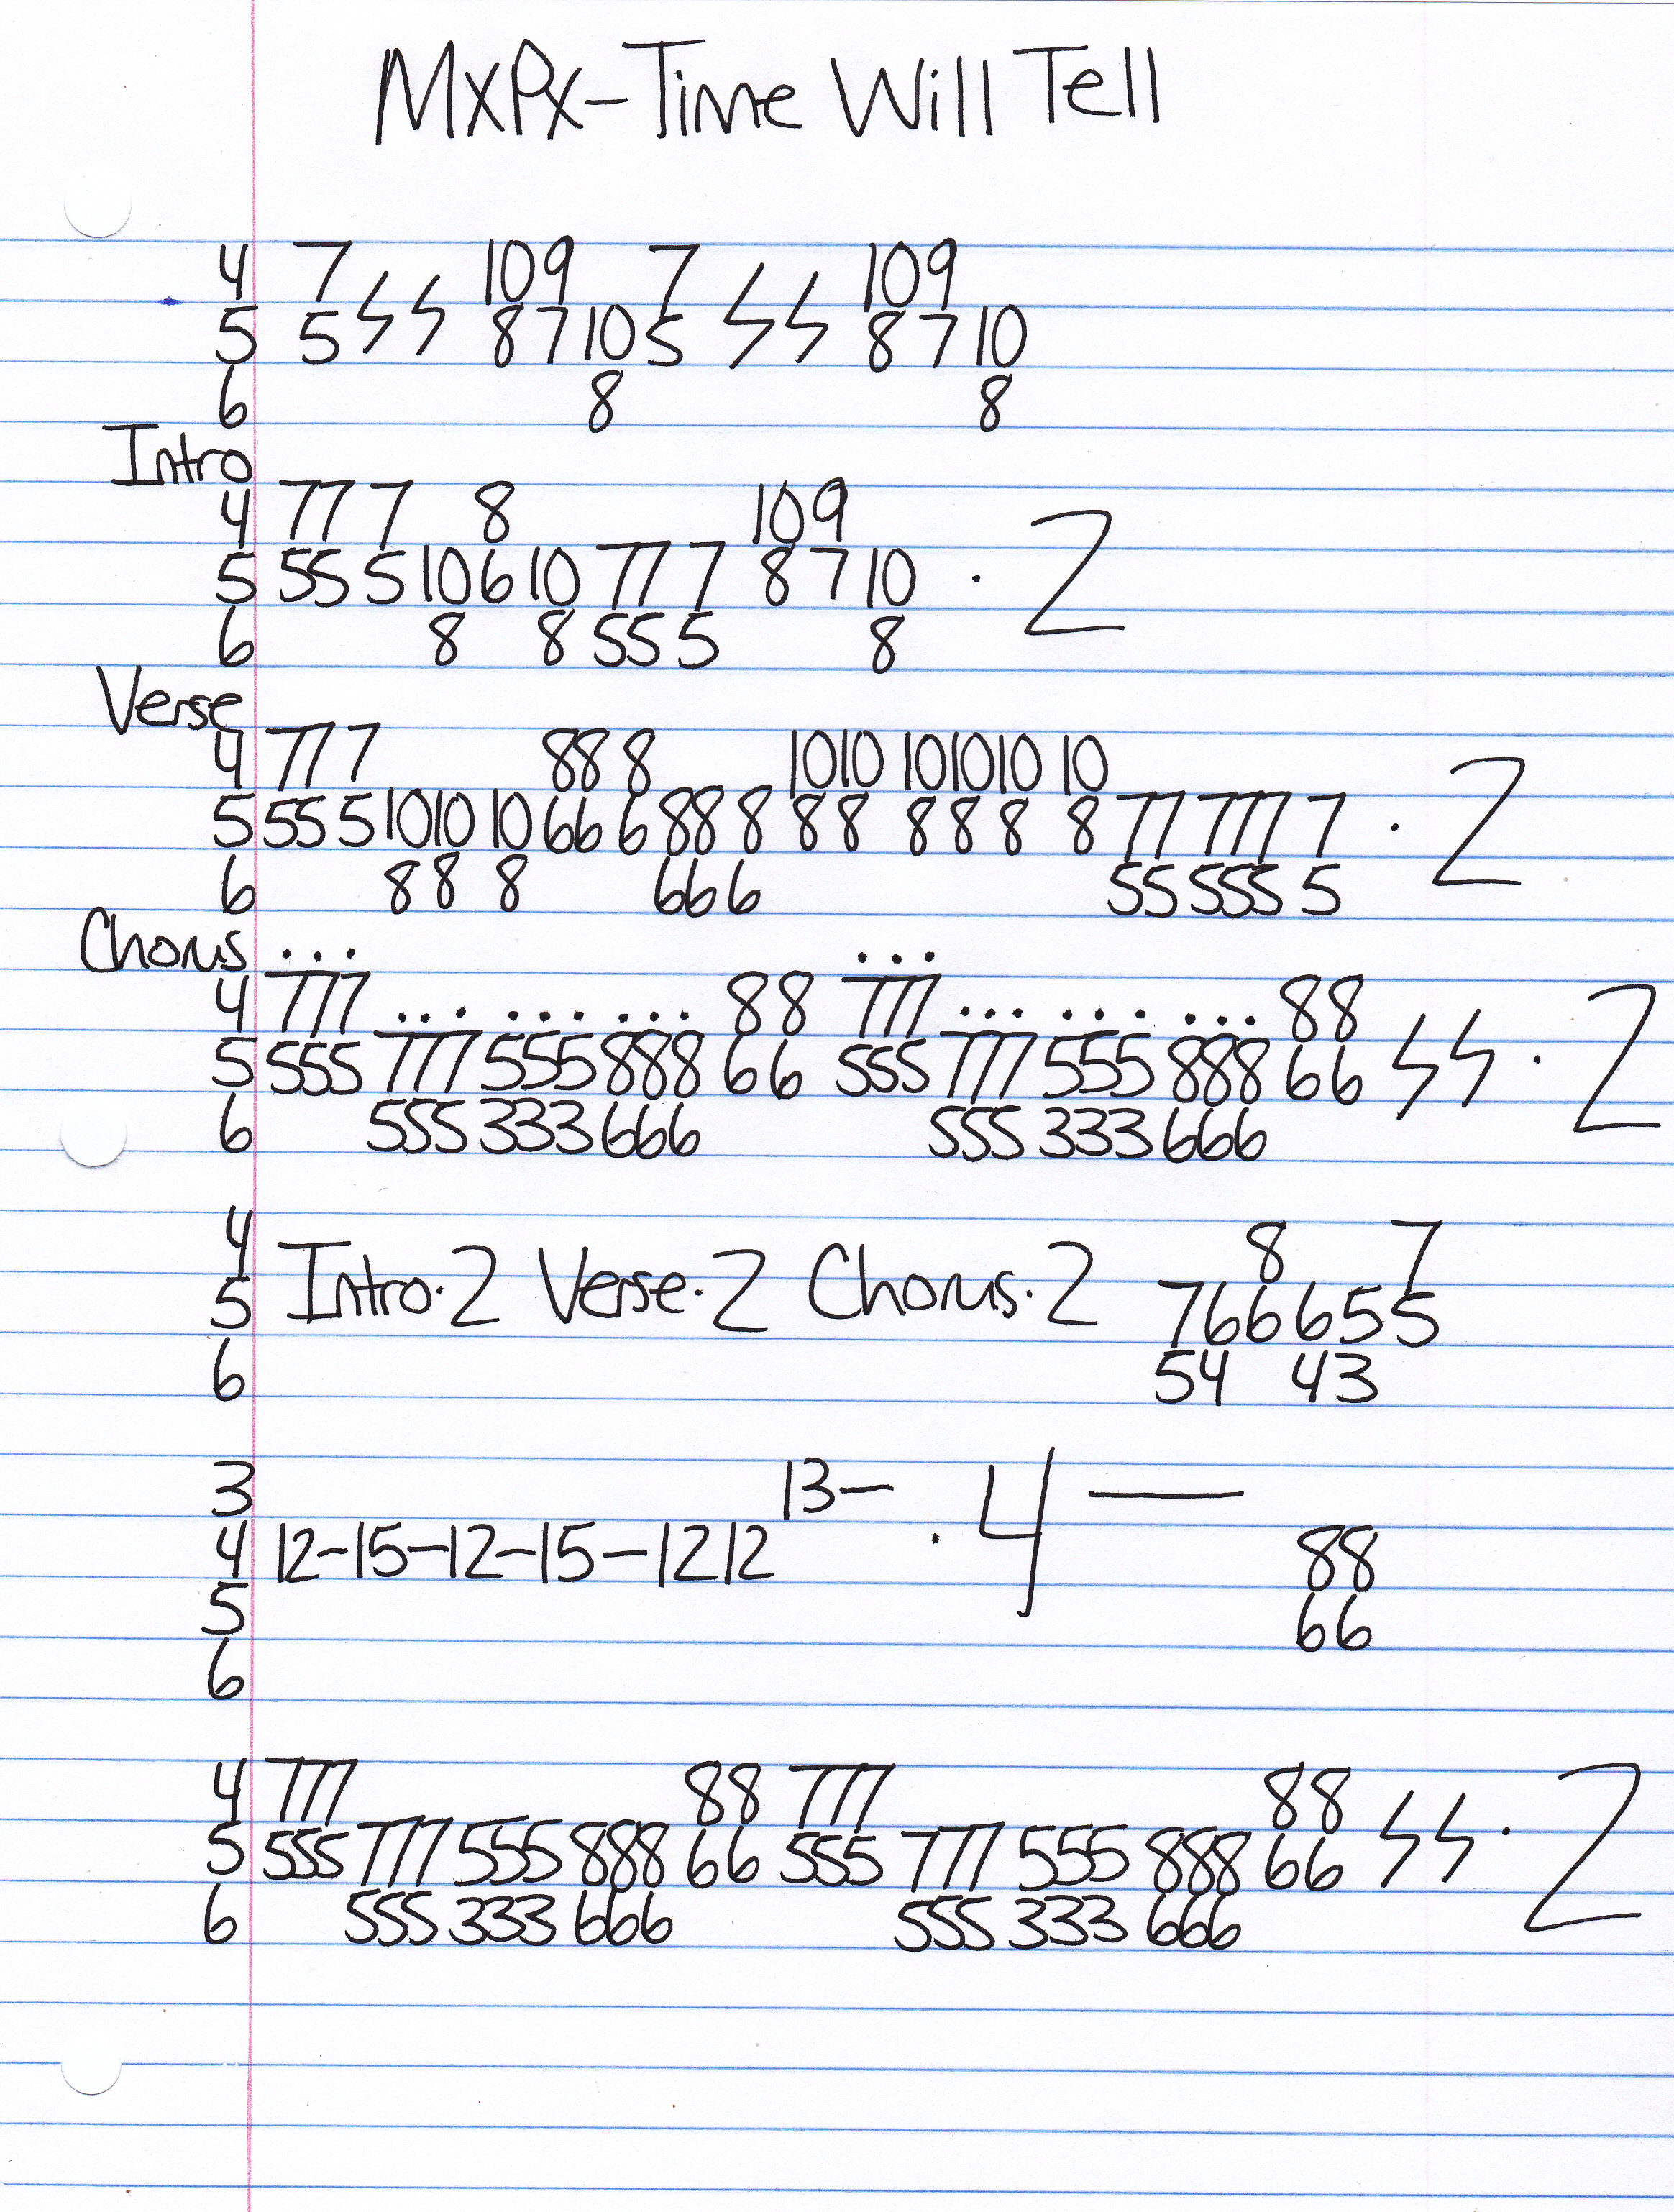 MxPx-Time Will Tell
4 7 ϟϟ 10 9 7 ϟϟ 10 9
5 5 8 7 10 5 8 7 10
6 8 8
Intro
4 77 7 8 10 9
5 55 5 10 6 10 77 7 8 7 10 · 2
6 8 8 55 5 8
Verse
4 77 7 88 8 1010 101010 10
5 55 5 1010 10 66 6 88 8 88 888 8 77 777 7 · 2
6 88 8 66 6 55 555 5
Chorus ... ...
4 777 ... ... ... 88 777 ... ... ... 88
5 555 777 555 888 66 555 777 555 888 66 ϟϟ · 2
6 555 333 666 555 333 666
4 8 7
5 Intro·2 Verse·2 Chorus·2 766655
6 54 43
3 13- · 4 —
4 12-15-12-15-1212 88
5 66
6
4 777 88 777 88
5 555 777 555 888 66 555 777 555 888 66 ϟϟ · 2
6 555 333 666 555 333 666